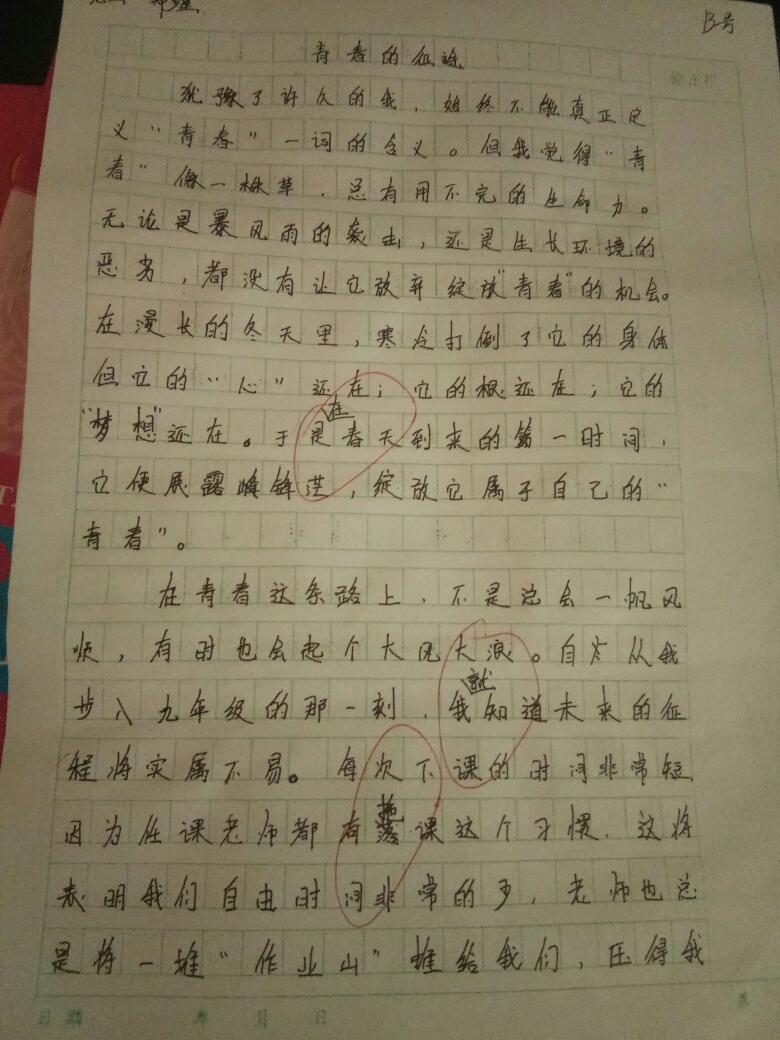 B号
青春的征途
犹豫了许久的我，始终不能真正定
义“青春”一词的含义。但我觉得“青
春”像一株草，总有用不完的生命力。
无论是暴风雨的袭击，还是生长环境的
恶劣，都没有让它放弃绽放“青春”的机会。
在漫长的冬天里，寒冷打倒了它的身体
但它的“心”还在；它的根还在；它的
“梦想”还在。于是在春天到来的第一时间，
它便展露锋芒，绽放它属于自己的“
青春”。
在青春这条路上，不是总会一帆风
顺，有时也会起个大风大浪。自从我
步入九年级的那一刻，我就知道未来的征
程将实属不易。每次下课的时间非常短，
因为任课老师都有拖课这个习惯，这将
表明我们自由时间非常的少，老师也总
是将一堆“作业山”堆给我们，压得我
日期 年 月 日